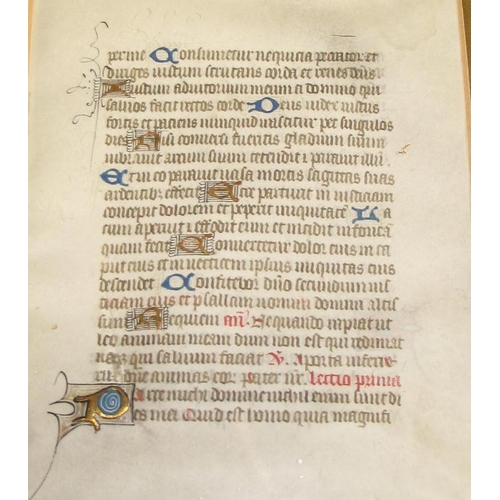 per me Consumetur nequicia peccator et
diriges iustum scrutans corda et renes deus
Iustum adiutorium meum a domino qui
saluos facit rectos corde Deus iudex iustus
fortis et paciens nunquid irascitur per singulos
dies Nisi conuersi fueritis gladium suum
uibrauit arcum suum tetendit i parauit illū
Et in eo parauit uasa mortis sagitas suas
ardentibz effecit Ecce parturit in iusticiam
concepit dolorem et peperit iniquitatē La
cum aperuit i effodit eum et incidit in foueā
quam fecit Conuertetur dolor eius in ca
put eius et in uerticem ipsius iniquitas eius
descendet Confitebor dn̄o secundum ius
ticiam eius et psallam nomini domini altis
simi Requiem an̄. Ne quando rapiat ut
leo animam meam dum non est qui redimat
neqz qui saluum faciat V. A porta inferi
erue animas eor pater nr̄. lectio prima
Parce michi domine nichil enim sunt di
es mei Quid est homo quia magnifi